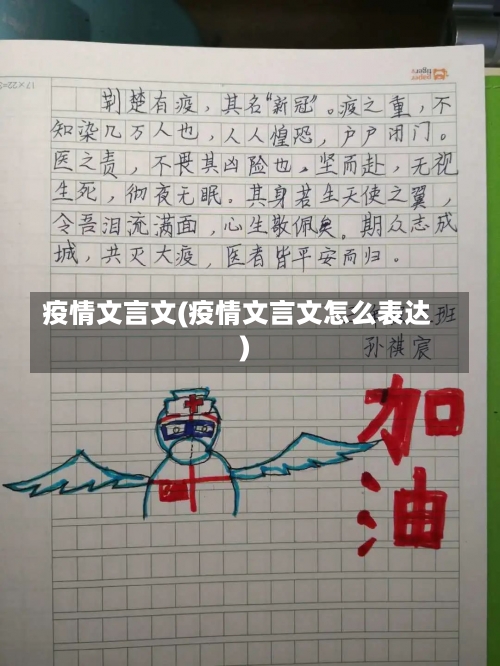 17×22=3
荆楚有疫，其名“新冠”。疫之重，不
知染几万人也，人人惶恐，户户闭门。
医之责，不畏其凶险也，坚而赴，无视
生死，彻夜无眠。其身若生天使之翼，
令吾泪流满面，心生敬佩矣。期众志成
城，共灭大疫，医者皆平安而归。
疫情文言文(疫情文言文怎么表达
)
班
孙祺宸
加
油